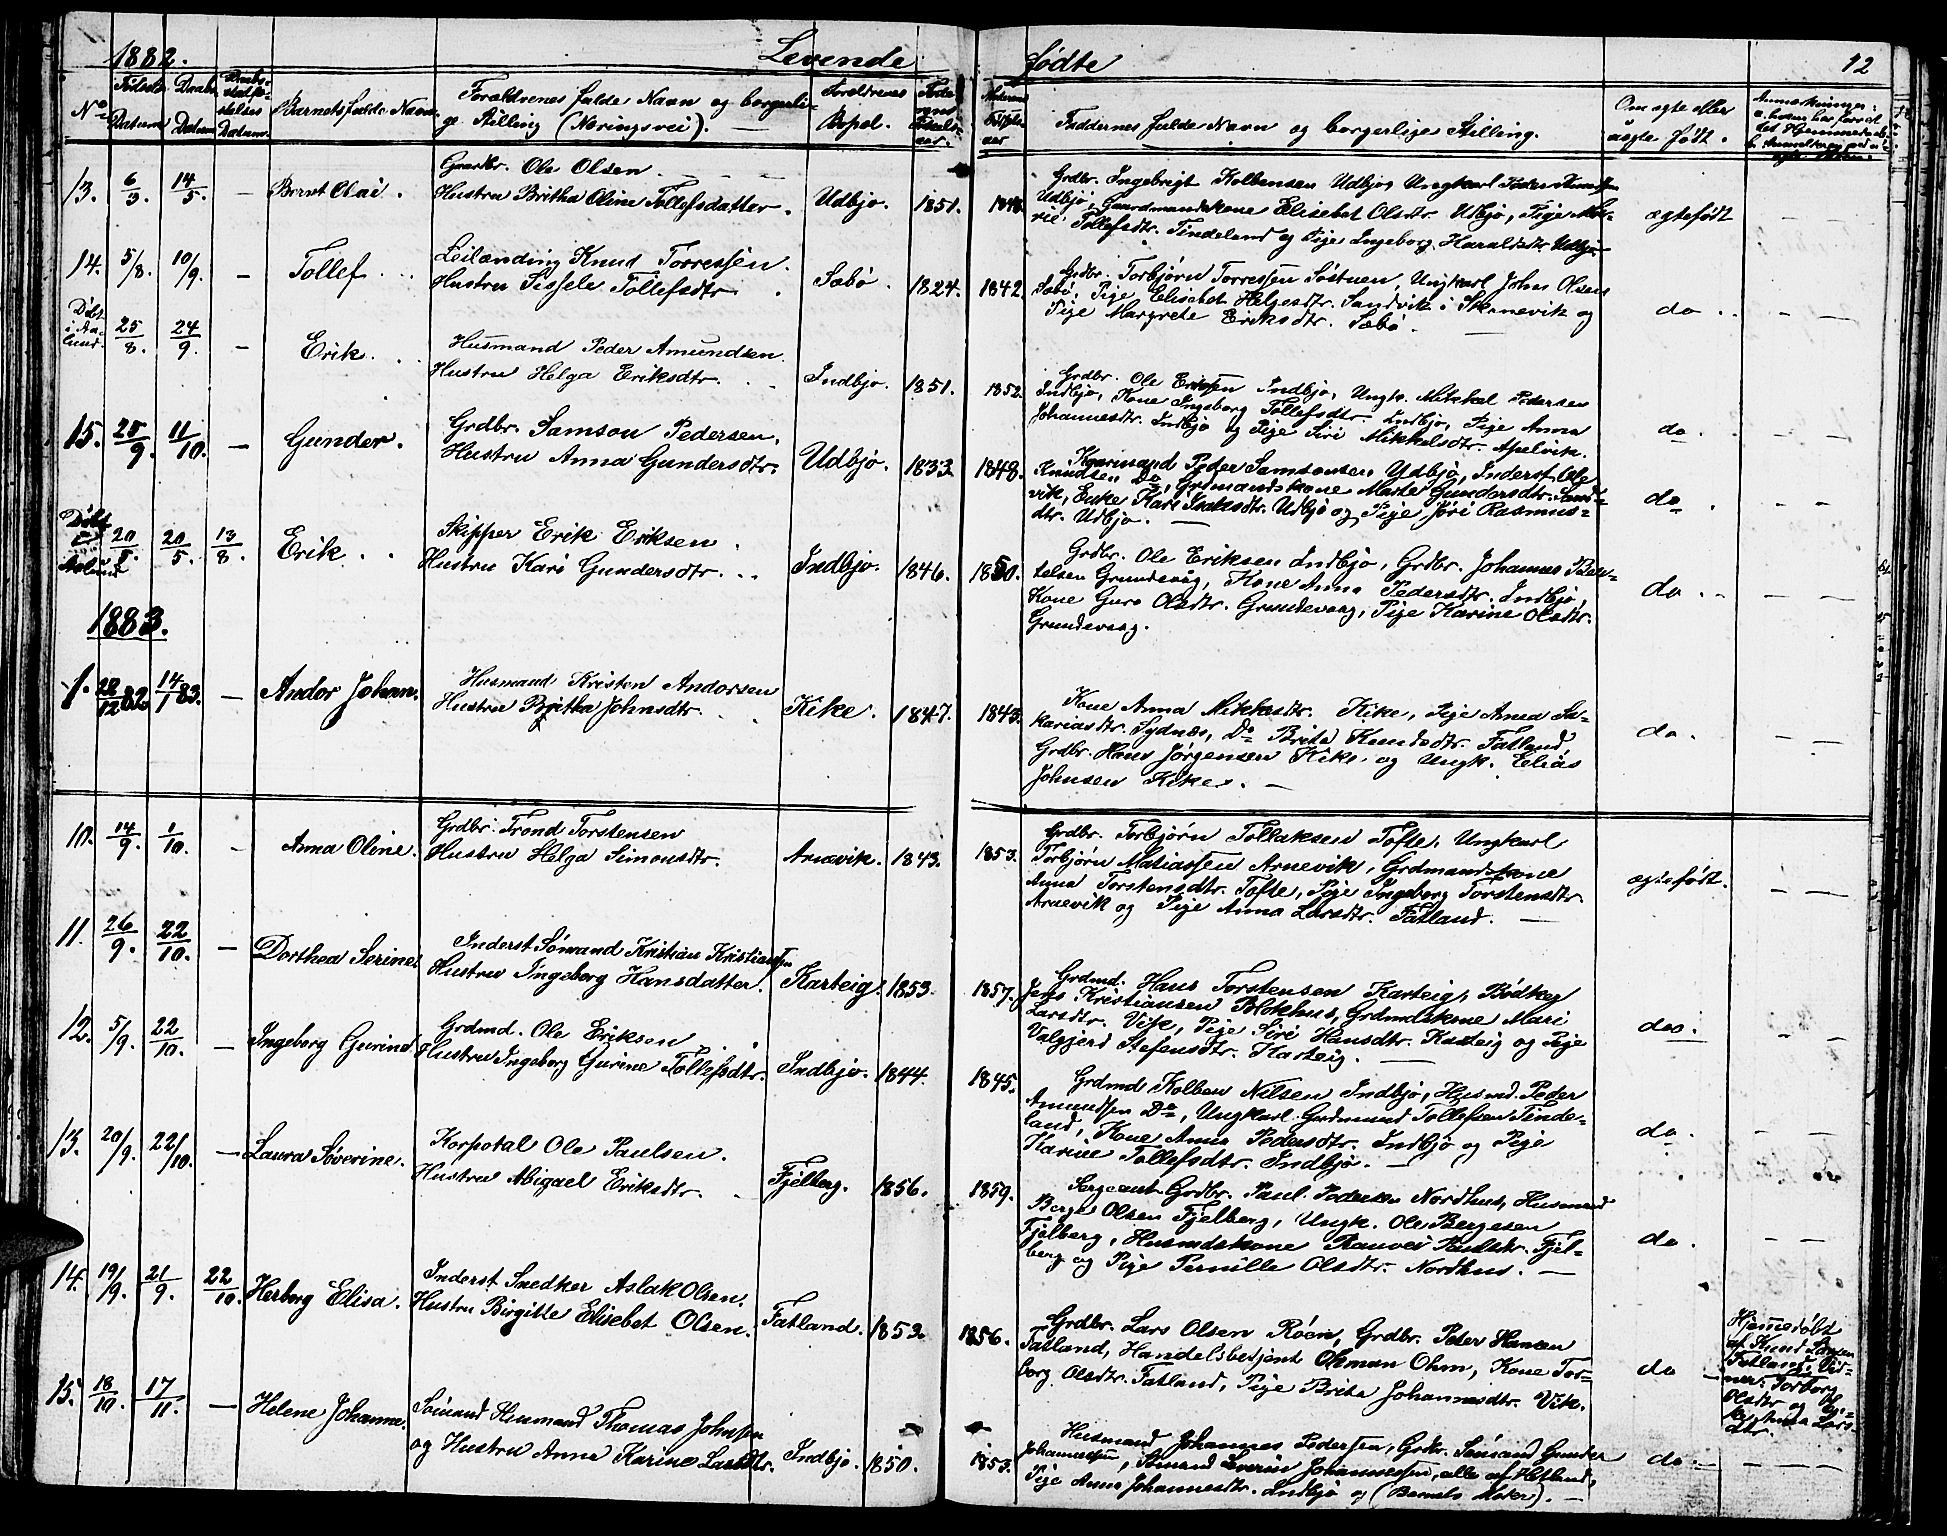 1882. Levende fødte 12
No Fødsels Datum Daabs Datum Daabs- Datum. Barnets fulde Navn Forældrenes fulde Navn og borgerli-
ge Stilling (Næringsvei). Forældrenes Bopæl. Faddernes fulde Navn og borgerlige Stilling. Om ægte eller
uægte født. Anmærkninger:
13. 6/3. 14/5. — Bernt Olai. Gaardbr. Ole Olsen
Hustru Britha Oline Tollefsdatter. Udbjo. 1851. Grdbr. Ingebrigt Kolbensen Udbjo, Ungkarl Peder
Udbjo, Gaardmandskone Elisebet Olsdtr. Udbjo, Pige Ma-
rie Tollefsdtr. Tindeland og Pige Ingeborg Haraldsdtr. Udbjo ægtefødt — —
14. 5/8. 10/9. — Tollef Leilænding Knud Torressen.
Hustru Sissele Tollefsdtr. Sæbø. 1824. 1842. Grdbr. Torbjørn Torressen Søstuen, Ungkarl John Olsen
Sæbø, Pige Elisebet Helgesdtr. Sandvik i Skonevik og
Pige Margrete Eriksdtr. Sæbø. do — —
Døbt
i Aa-
lund. 25/8. 24/9. — Erik. Husmand Peder Amundsen.
Hustru Helga Eriksdtr. Indbjo. 1851. 1852. Grdbr. Ole Erissen Indbjo, Ungk. Mikkel Pedersen
Indbjo, Kone Ingeborg Tollefsdtr. Indbjo, Pige Anna
Johannesdtr. Indbjo og Pige Siri Mikkelsdtr. Apelvik. do. — —
15. 25/9. 11/10. — Gunder. Grdbr. Samson Pedersen,
Hustru Anna Gundersdtr. Udbjo. 1833 1848. Peder Samsonsen Udbjo, Inderst Ole
Knudsen Do, Grdmandskone Marte Gundersdtr. Sand-
vik, Enke Kari Isaksdtr. Udbjo og Pige Jori Rasmus-
dtr. Udbjo. — do — —
Døbt 20/5. 20/5. 13/8. Erik. Skipper Erik Eriksen.
Hustru Kari Gundersdtr. Indbjo. 1846. 1850. Grdbr. Ole Eriksen Indbjo, Grdbr. Johannes Ber-
telsen Grundevaag, Kone Anna Pedersdtr. Indbjo,
Kone Guro Olsdtr. Grundevaag, Pige Karine Olsdtr.
Grundevaag. do — —
1883.
1. 28/12 82 14/1 83. — Andor Johan. Husmand Kristen Andorsen
Hustru Britha Johnsdtr. Kike. 1847. 1843. Kone Anna Mikkelsdtr. Kike, Pige Anna Sa-
kariasdtr. Sydnæs, Do Brita Knudsdtr. Fatland,
Grdbr. Hans Jørgensen Kike og Ungk. Elias
Johnsen Kike. — do. — —
10. 14/9. 1/10. — Anna Oline. Grdbr. Trond Torstensen
Hustru Helga Simonsdtr. Arnevik. 1843. 1853. Grdbr. Torbjørn Tollaksen Tofte, Ungkarl
Torbjørn Matiassen Arnevik, Grdmandskone
Anna Torstensdtr. Tofte, Pige Ingeborg Torstensdtr.
Arnevik og Pige Anna Larsdtr. Fatland. — ægtefødt. — —
11. 26/9. 22/10. — Dorthea Serine. Inderst Sømand Kristian Kristiansen
Hustru Ingeborg Hansdatter. Karteig. 1853. 1857. Grdmd. Hans Torstensen Karteig, Bødker
Jens Kristiansen Blokhus, Grdmdskone Mari
Larsdtr. Vik, Pige Siri Hansdtr. Karteig og Pige
Valgjerd Stefensdtr. Karteig. — do. — —
12. 5/9. 22/10. — Ingeborg Gurine Grdmd. Ole Eriksen
Hustru Ingeborg Gurine Tollefsdtr. Indbjo. 1844. 1845. Grdmd Kolben Nilsen Indbjo, Husmd. Peder
Amundsen Do, Ungkarl Gudmund Tollefsen Tinde-
land, Kone Anna Pedersdtr. Indbjo og Pige
Karine Tollefsdtr. Indbjo. — do. — —
13. 20/9. 22/10. — Laura Søverine. Korporal Ole Paulsen.
Hustru Abigael Eriksdtr. Fjelberg. 1856. 1859. Sergeant Grdbr. Paul Pedersen Nordhus, Husmand
Berge Olsen Fjelberg, Ungk. Ole Bergesen
Fjelberg, Husmdskone Ranvei Paulsdtr. Fjel-
berg og Pige Pernille Olsdtr. Nordhus. — do. — —
14. 19/9. 21/9. 22/10. Herborg Elisa. Inderst Snedker Aslak Olsen.
Hustru Birgitte Elisebet Olsen. Fatland. 1853. 1856. Grdbr. Lars Olsen Røen, Grdbr. Peder Hansen
Fatland, Handelsbetjent Ohman Ohm, Kone Tor-
borg Olsdtr. Fatland, Pige Brita Johannesdtr. Vik. do — Hjemmedøbt
af Knud Larsen
Fatland, Vid-
ner: Torborg
Olsdtr og
Larsdtr.
15. 18/10. 17/11. — Helene Johanne. Sømand Husmand Thomas Johnsen
og Hustru Anna Karine Larsdtr. Indbjo. 1850. 1853. Husmand Johannes Pedersen, Grdbr. Sømand Gunder
Johannessen, Sømand Severin Johannessen, alle af Hetland,
Pige Anna Johannesdtr. Indbjo og (Barnets Moder). — do. —